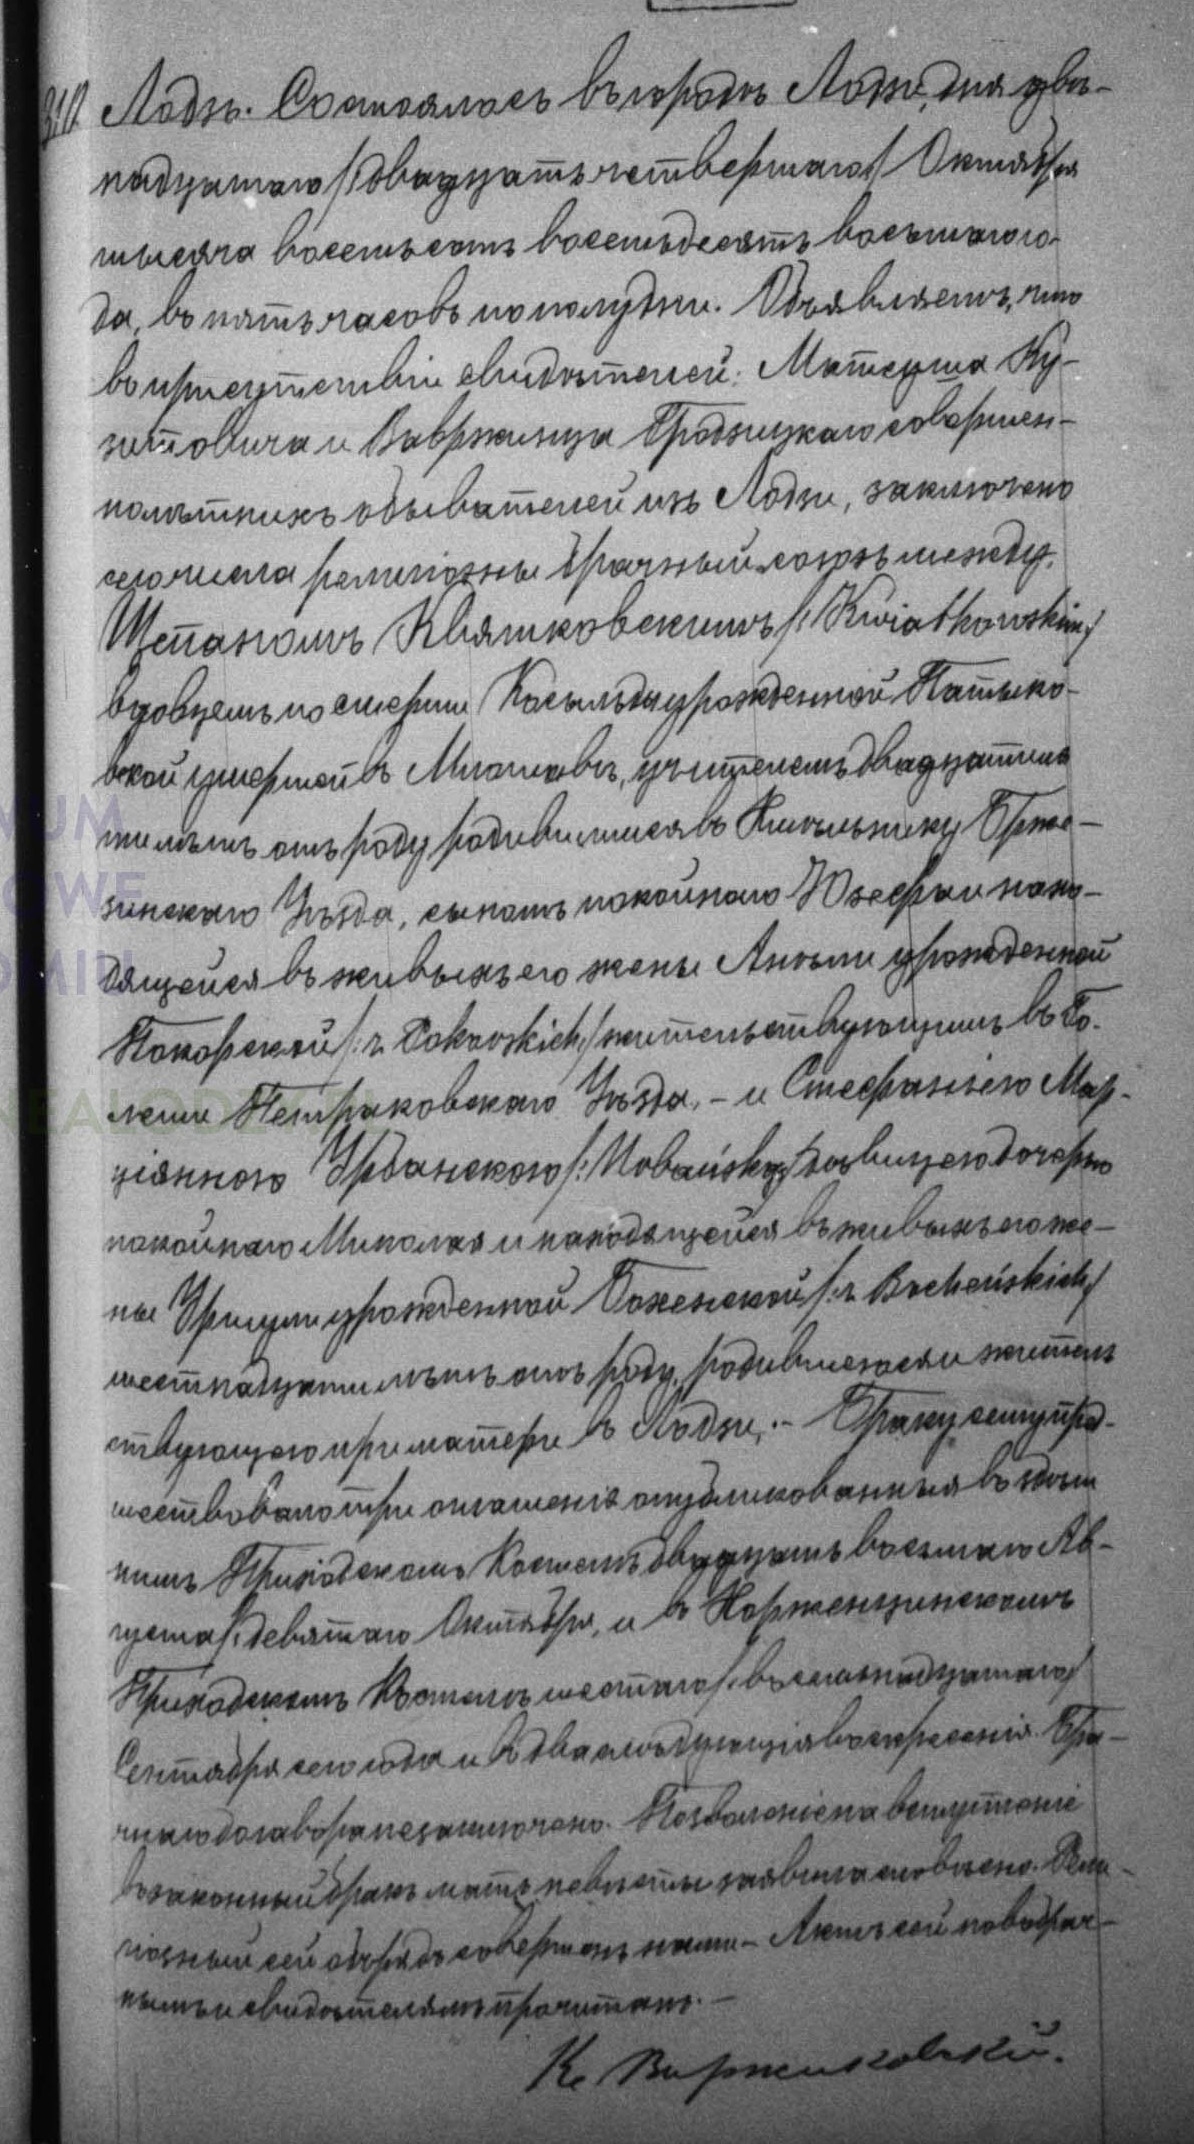 310 Лодзь. Состоялось въ городѣ Лодзи, дня двѣ-
надцатаго /: двадцать четвертаго :/ Октября
тысяча восемьсотъ восемьдесятъ восьмаго го-
да, въ пять часовъ по полудни. Объявляемъ, что
въ присутствіи свидѣтелей: Матеуша Ку-
зитовича и Вавржинца Гродзицкаго совершен-
нолѣтнихъ обывателей изъ Лодзи, заключенъ
сего числа религіозны брачный союзъ между,
Щепаномъ Квятковскимъ /: Kwiatkowskim :/
вдовцемъ по смерти Касыльды урожденной
вской умершей въ учителемъ двадцати
лѣтъ отъ роду родившимся въ Брже-
зинскаго Уѣзда, сыномъ покойнаго Юзефа и нахо-
дящейся въ живыхъ его жены Анѣли урожденной
Покорской /: z Pokorskich :/ жительствующимъ въ
Петроковскаго Уѣзда, – и Стефаніею Мар-
ціянною Урбанскою /: Urbańską :/ дѣвицею дочерью
покойнаго Миколая и находящейся въ живыхъ его же-
ны Уршули урожденной Бохенской /: z Bocheńskich :/
шестнадцати лѣтъ отъ роду, родившеюся и житель
ствующею при матери въ Лодзи, – Браку сему пред-
шествовало три оглашенія опубликованныя въ здѣш
нимъ Приходскомъ Костелѣ двадцать восьмаго Ав-
густа /: девятаго Октября, и въ
Приходскомъ Костелѣ шестаго /: восемнадцатаго :/
Сентября сего года и въ два слѣдующія воскресенія. Бра-
чнаго договора не заключено. Позволеніе на вступленіе
въ законный бракъ мать невѣсты заявила словѣсно. Рели-
гіозный сей обрядъ совершенъ нами – Актъ сей новобрач-
нымъ и свидѣтелямъ прочитанъ. –
К.
NUM
OWE
OMIU
NEALODZY